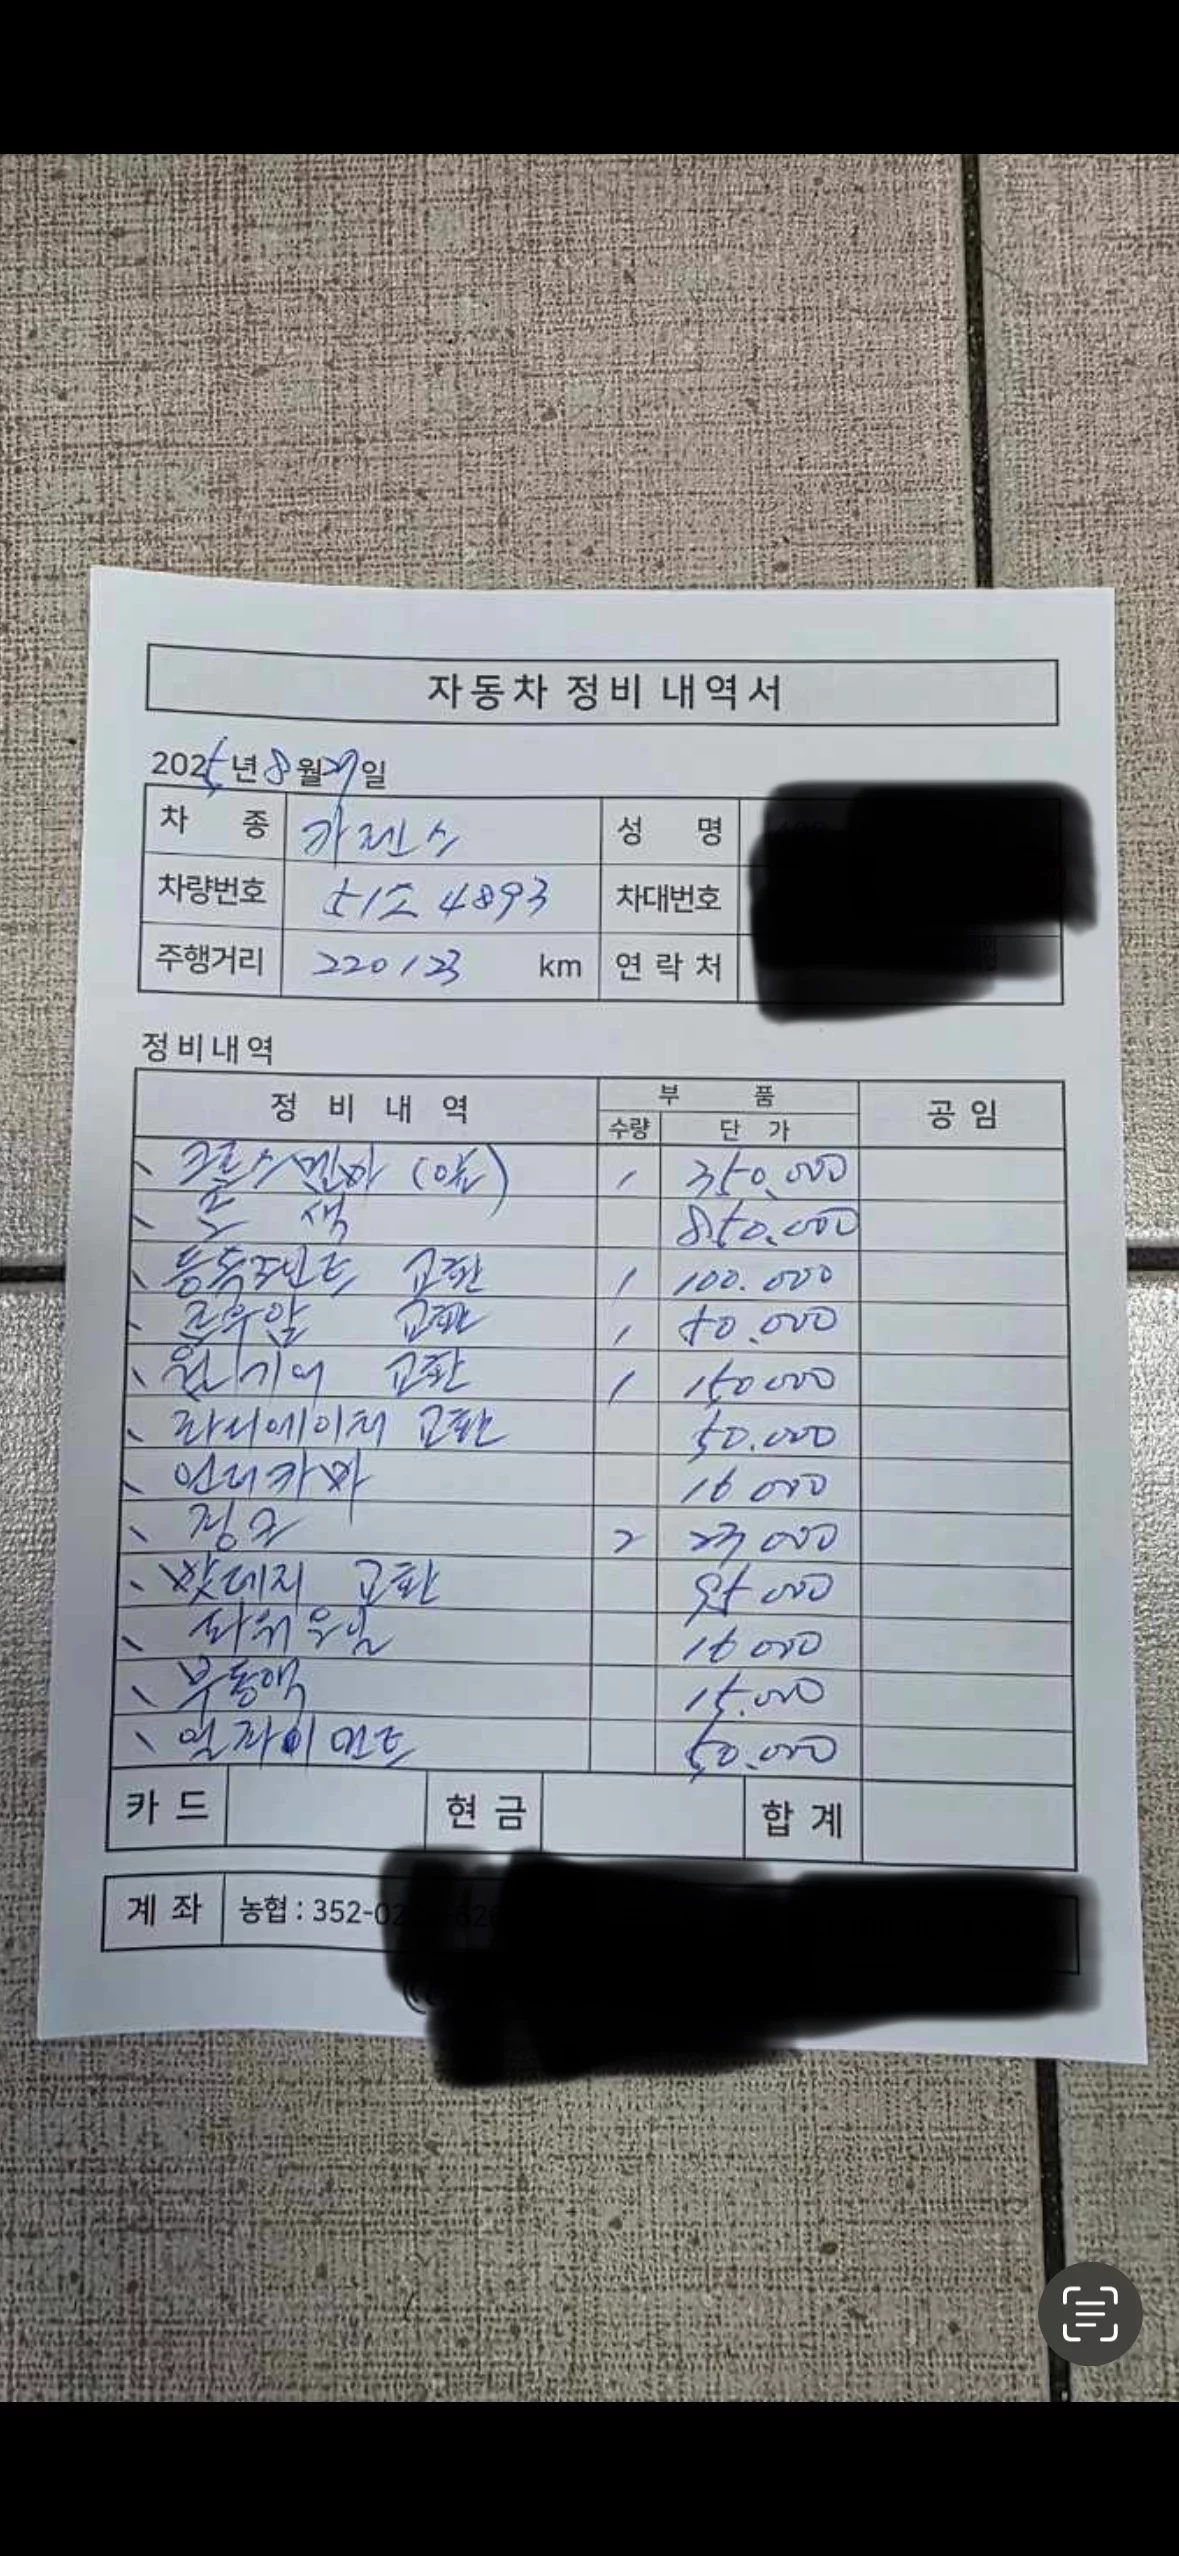 자동차 정비 내역서
2025년 8월 29일
차 종 카렌스 성 명
차량번호 51소 4893 차대번호
주행거리 220123 km 연락처
정비내역
정 비 내 역 부 품 공 임
수량 단 가
크로스멤바 (야) 1 350,000
도 색 850.000
등속조인트 교환 1 100.000
로우암 교환 1 50.000
웜기어 교환 1 150000
라지에이터 교환 50.000
언더카바 16000
2 23000
밧데리 교환 95000
파워오일 16000
부동액 15.000
얼라이먼트 50.000
카드 현금 합계
계좌 농협 : 352-02